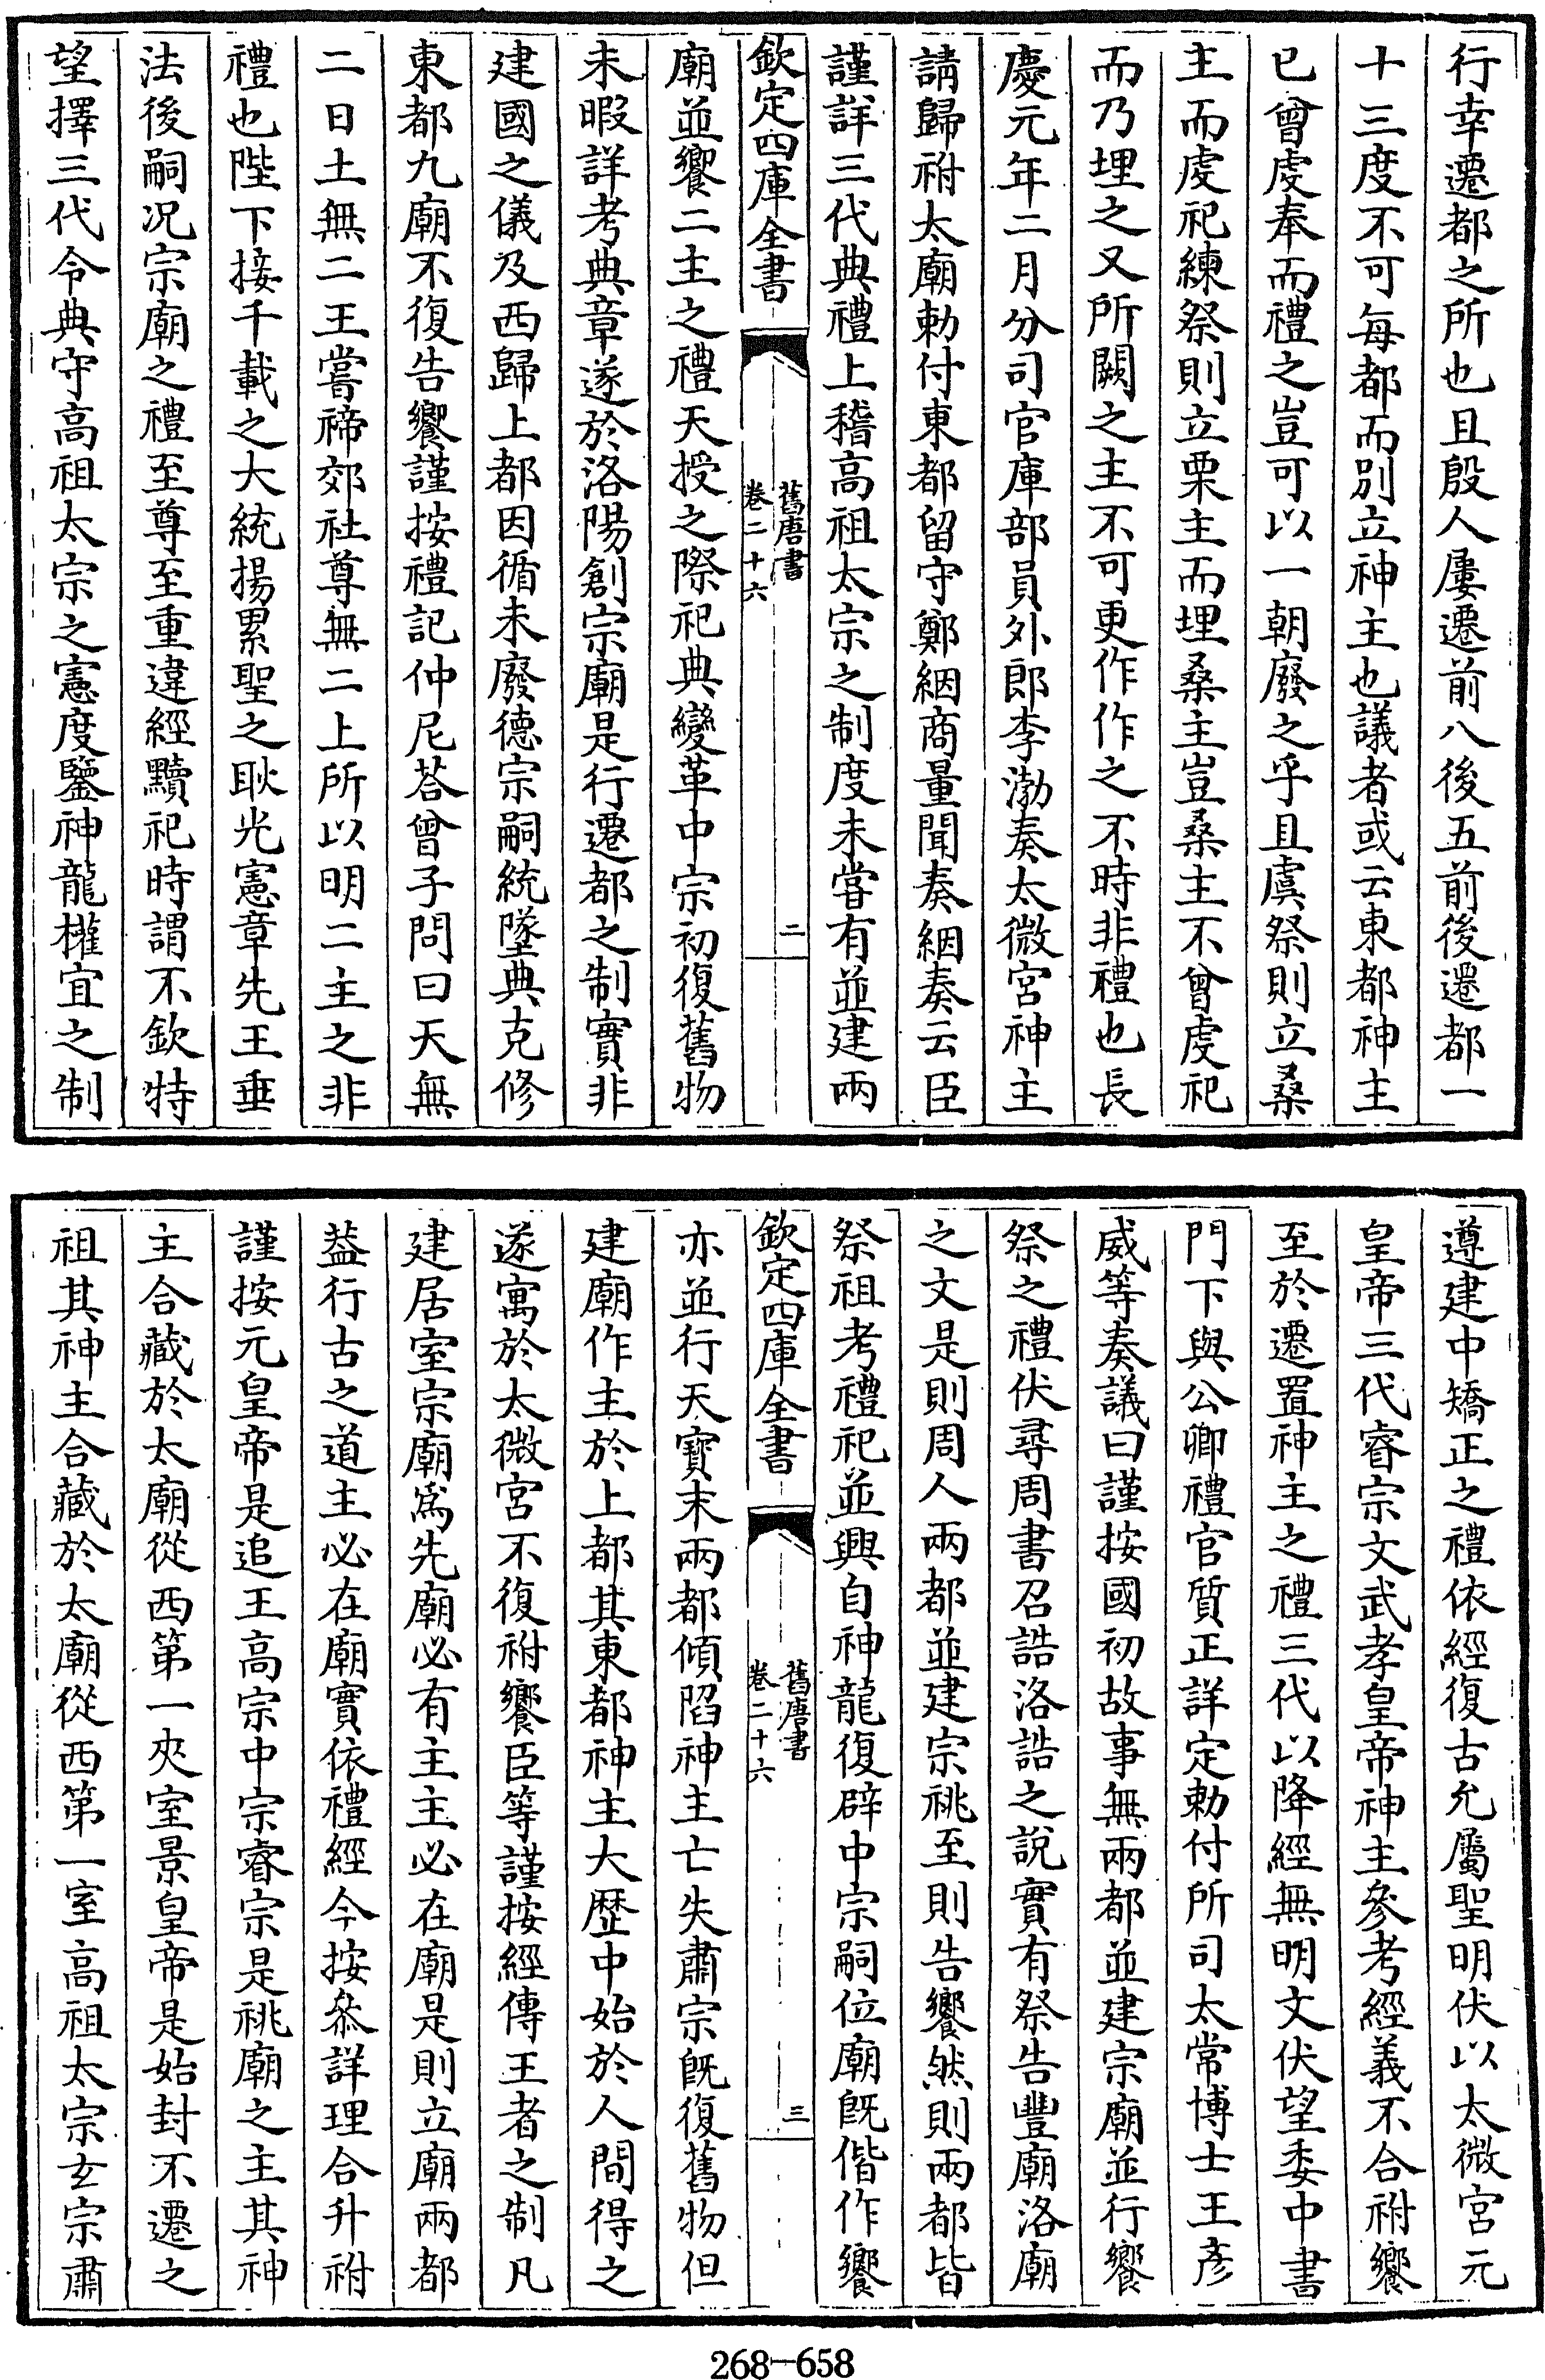 行幸遷都之所也且殷人屢遷前八後五前後遷都一
十三度不可每都而別立神主也議者或云東都神主
已曾虔奉而禮之豈可以一朝廢之乎且虞祭則立桑
主而虔祀練祭則立栗主而埋桑主豈桑主不曾虔祀
而乃埋之又所闕之主不可更作作之不時非禮也長
慶元年二月分司官庫部員外郎李渤奏太微宮神主
請歸祔太廟勅付東都留守鄭絪商量聞奏絪奏云臣
謹詳三代典禮上稽高祖太宗之制度未嘗有並建兩
欽定四庫全書
舊唐書
卷二十六
二
廟並饗二主之禮天授之際祀典變革中宗初復舊物
未暇詳考典章遂於洛陽創宗廟是行遷都之制實非
建國之儀及西歸上都因循未廢德宗嗣統墜典克修
東都九廟不復告饗謹按禮記仲尼荅曾子問曰天無
二日土無二王嘗禘郊社尊無二上所以明二主之非
禮也陛下接千載之大統揚累聖之耿光憲章先王垂
法後嗣况宗廟之禮至尊至重違經黷祀時謂不欽特
望擇三代令典守高祖太宗之憲度鑒神龍權宜之制
遵建中矯正之禮依經復古允屬聖明伏以太微宮元
皇帝三代睿宗文武孝皇帝神主參考經義不合祔饗
至於遷置神主之禮三代以降經無明文伏望委中書
門下與公卿禮官質正詳定勅付所司太常博士王彥
威等奏議曰謹按國初故事無兩都並建宗廟並行饗
祭之禮伏尋周書召誥洛誥之說實有祭告豐廟洛廟
之文是則周人兩都並建宗祧至則告饗然則兩都皆
祭祖考禮祀並興自神龍復辟中宗嗣位廟旣偕作饗
欽定四庫全書
舊唐書
卷二十六
三
亦並行天寶末兩都傾陷神主亡失肅宗旣復舊物但
建廟作主於上都其東都神主大歴中始於人間得之
遂寓於太微宮不復祔饗臣等謹按經傳王者之制凡
建居室宗廟爲先廟必有主主必在廟是則立廟兩都
葢行古之道主必在廟實依禮經今按叅詳理合升祔
謹按元皇帝是追王高宗中宗睿宗是祧廟之主其神
主合藏於太廟從西第一夾室景皇帝是始封不遷之
祖其神主合藏於太廟從西第一室高祖太宗玄宗肅
268-658